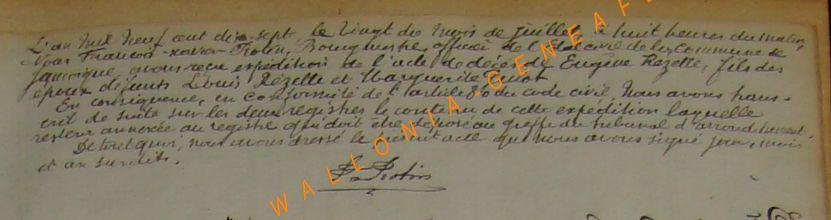 L'an mil neuf cent dix-sept, le vingt du mois de juillet à huit heures du matin,
Nous François-xavier Protin, Bourgmestre officier de l'Etat civil de la Commune de
Jamoigne, avons reçu expédition de l'acte de décès de Eugène Rezette, fils des
époux défunts Louis Rézette et Marguerite
En conséquence, en conformité de l'article 80 du code civil Nous avons trans-
crit de suite sur les deux registres le contenu de cette expédition laquelle
restera annexée au registre qui doit être déposé au greffe du tribunal d'arrondissement.
De tout quoi, nous avons dressé le présent acte que nous avons signé jour, mois
et an susdits.
Protin
WALLONIA GENEAF